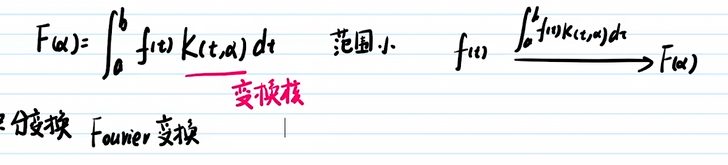 F(α)=∫_a^b f(t) K(t,α) dt 范围小 f(t) ∫_a^b f(t)K(t,α)dt → F(α)
变换核
分变换 Fourier 变换